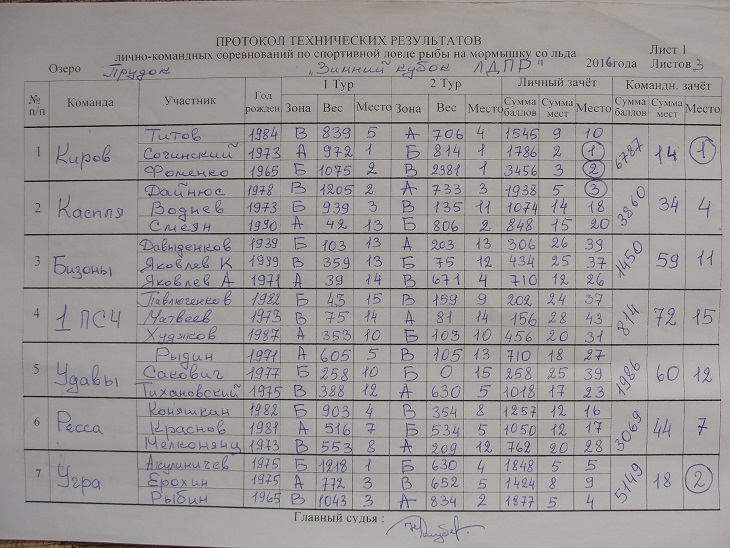 ПРОТОКОЛ ТЕХНИЧЕСКИХ РЕЗУЛЬТАТОВ
лично-командных соревнований по спортивной ловле рыбы на мормышку со льда
Лист 1
Озеро Прудок "Зимний кубок ЛДПР" 2016года Листов 3
№ п/п Команда Участник Год рожден. 1 Тур 2 Тур Личный зачёт Командн. зачёт
Зона Вес Место Зона Вес Место Сумма баллов Сумма мест Место Сумма баллов Сумма мест Место
Титов 1984 В 839 5 А 706 4 1545 9 10
1 Киров Сочинский 1973 А 972 1 Б 814 1 1786 2 1 6787 14 1
Фоменко 1965 Б 1075 2 В 2381 1 3456 3 2
Дайнюс 1978 В 1205 2 А 733 3 1938 5 3
2 Каспля Воднев 1973 Б 939 3 В 135 11 1074 14 18 3860 34 4
Смеян 1990 А 42 13 Б 806 2 848 15 20
Давыденков 1939 Б 103 13 А 203 13 306 26 39
3 Бизоны Яковлев К 1999 В 359 13 Б 75 12 434 25 37 1450 59 11
Яковлев А 1971 А 39 14 В 671 4 710 12 26
Павлюченков 1982 Б 43 15 В 159 9 202 24 37
4 1 ПСЧ Матвеев 1973 В 75 14 А 81 14 156 28 43 814 72 15
Худяков 1987 А 353 10 Б 103 10 456 20 31
Рыдин 1971 А 605 5 В 105 13 710 18 27
5 Удавы Сакович 1977 Б 258 10 Б 0 15 258 25 39 1986 60 12
Тихановский 1975 В 388 12 А 630 5 1018 17 23
Коняшкин 1982 Б 903 4 В 354 8 1257 12 16
6 Ресса Краснов 1981 А 516 7 Б 534 5 1050 12 17 3069 44 7
Мелконянц 1973 В 553 8 А 209 12 762 20 28
Акулиничев 1975 Б 1218 1 Б 630 4 1848 5 5
7 Угра Ерохин 1975 А 772 3 В 652 5 1424 8 9 5149 18 2
Рыбин 1965 В 1043 3 А 834 2 1877 5 4
Главный судья :